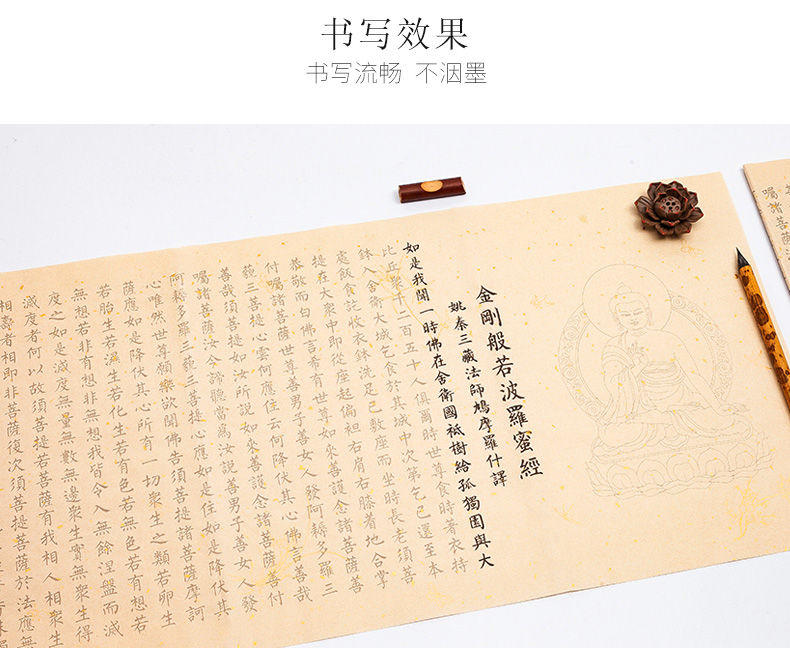 书写效果
书写流畅 不洇墨
金剛般若波羅蜜經
姚秦三藏法師鳩摩羅什譯
如是我聞一時佛在舍衛國祇樹給孤獨園與大
比丘眾千二百五十人俱爾時世尊食時著衣持
鉢入舍衛大城乞食於其城中次第乞已還至本
處飯食訖收衣鉢洗足已敷座而坐時長老須菩
提在大眾中即從座起偏袒右肩右膝着地合掌
恭敬而白佛言希有世尊如來善護念諸菩薩善
付囑諸菩薩世尊善男子善女人發阿耨多羅三
藐三菩提心雲何應住云何降伏其心佛言善哉
善哉須菩提如汝所說如來善護念諸菩薩善付
囑諸菩薩汝今諦聽當為汝說善男子善女人發
阿耨多羅三藐三菩提心應如是住如是降伏其
心唯然世尊願樂欲聞佛告須菩提諸菩薩摩訶
薩應如是降伏其心所有一切眾生之類若卵生
若胎生若濕生若化生若有色若無色若有想若
無想若非有想非無想我皆令入無餘涅盤而滅
度之如是滅度無量無數無邊眾生實無眾生得
滅度者何以故須菩提若菩薩有我相人相眾生
相壽者相即非菩薩復次須菩提菩薩於法應無
囑諸菩薩